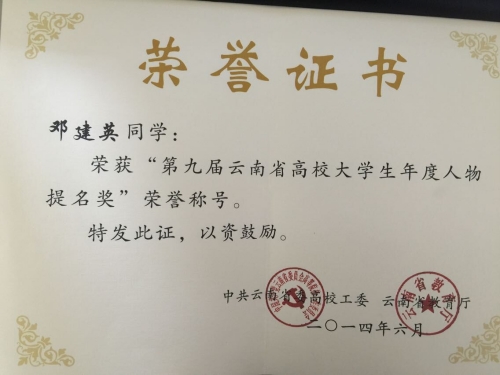 荣誉证书
邓建英同学：
荣获“第九届云南省高校大学生年度人物
提名奖”荣誉称号。
特发此证，以资鼓励。
中共云南省委高校工委 云南省教育厅
二〇一四年六月
云南省教育厅